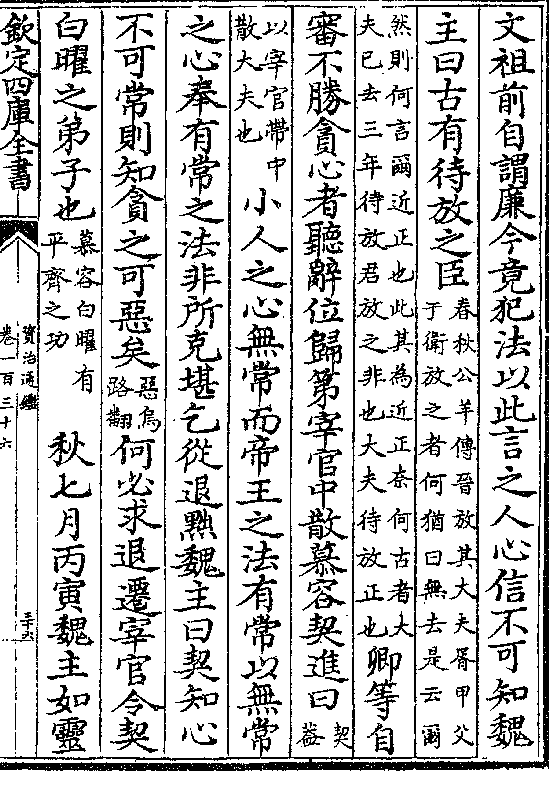 文祖前自謂廉今竟犯法以此言之人心信不可知魏
主曰古有待放之臣
春秋公羊傳晉放其大夫胥甲父
于衛放之者何猶曰無去是云爾
然則何言爾近正也此其為近正奈何古者大
夫已去三年待放君放之非也大夫待放正也
卿等自
審不勝貪心者聽辭位歸第宰官中散慕容契進曰
契
葢
以宰官帶中
散大夫也
小人之心無常而帝王之法有常以無常
之心奉有常之法非所克堪乞從退黜魏主曰契知心
不可常則知貪之可惡矣
惡烏
路翻
何必求退遷宰官令契
白曜之弟子也
慕容白曜有
平齊之功
秋七月丙寅魏主如靈
欽定四庫全書
資治通鑑
卷一百三十六
三十六